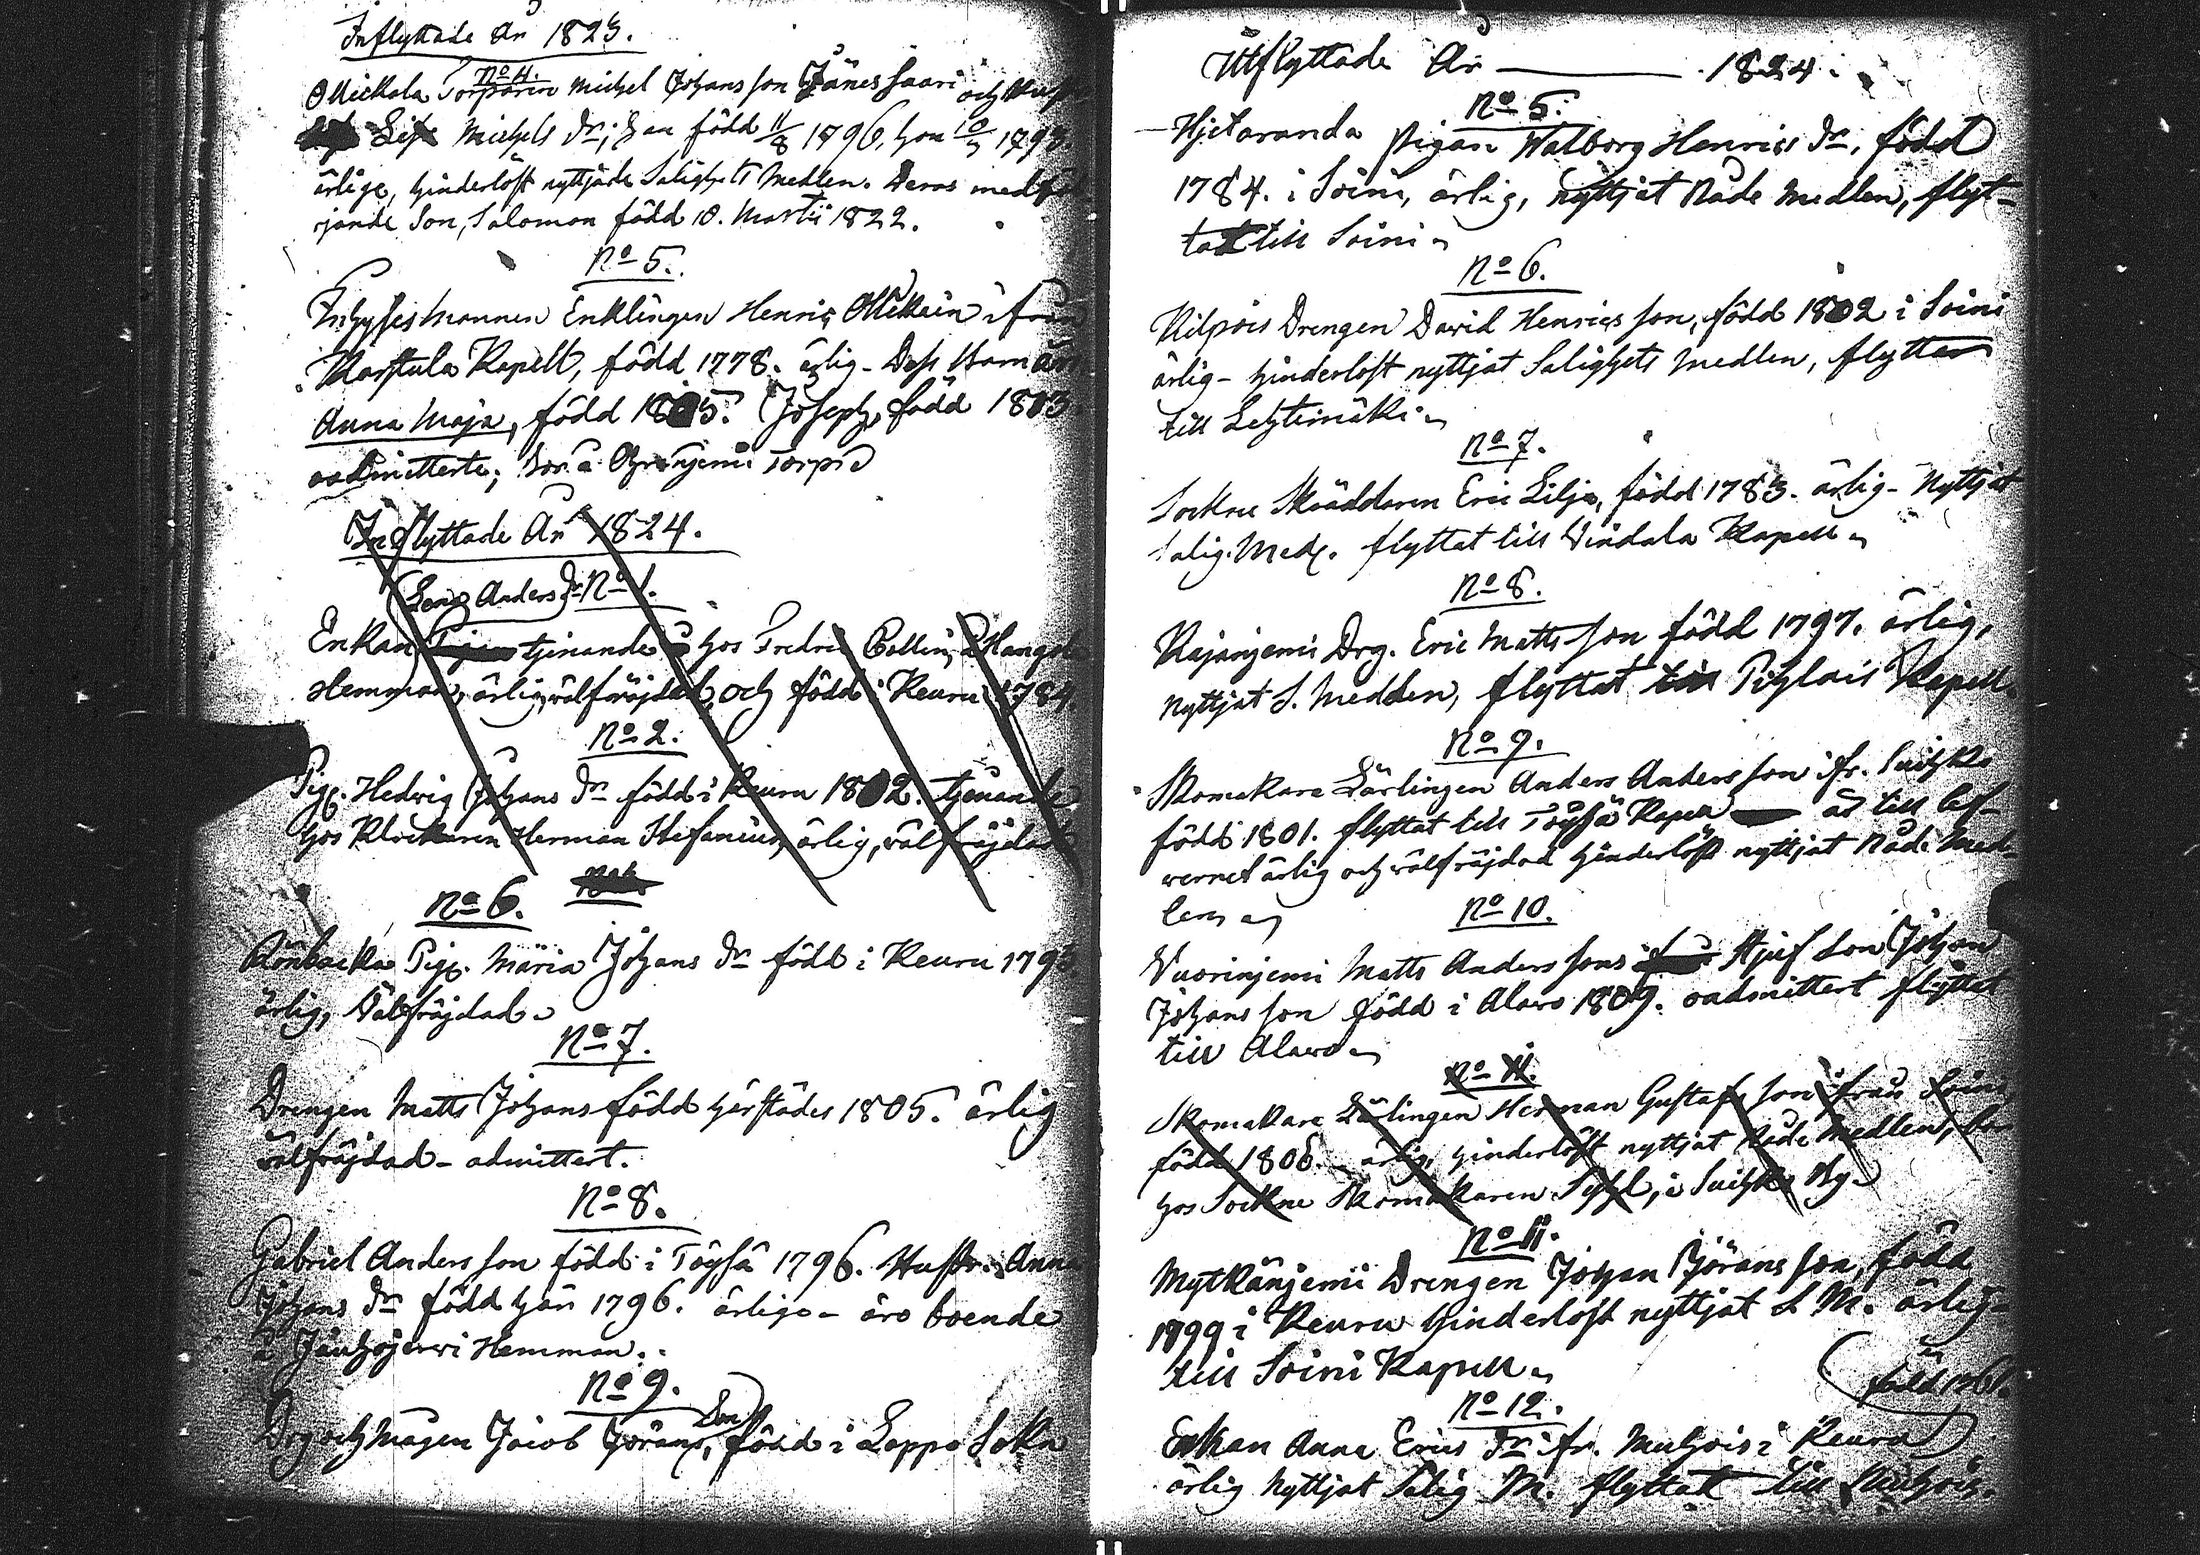 Inflyttade År 1823.
No 4.
Mickala Torparen Michel Johansson Jänessaari och
Michels Dr; han född 11/8 1796, hon 10/3
ärlige, hinderlöst nyttjade Salighets Medlen. Deras
rjande Son, Salomon född 10. Martii 1822.
No 5.
Inhysesmannen Enklingen Henric ifrån
Karstula Kapell, född 1778. ärlig - Dess Barn
Anna Maja, född 1805. Joseph, född 1803
oadmitterte; torp
Inflyttade År 1824.
Lena Anders Dr No 1.
Enkan tjenande hos Fredric Collin,
Hemman, ärlig, välfräjdad, och född i Keuru 1784
No 2.
Pig. Hedvig Johans Dr född i Keuru 1802. tjenande
hos Klockaren Herman Stefanius, ärlig, välfräjdad
No 6.
Rönbacka Pig. Maria Johans Dr född i Keuru
ärlig, Välfräjdad
No 7.
Drengen Matts Johans född härstädes 1805. ärlig
välfräjdad - admittert.
No 8.
Gabriel Andersson född i Töysä 1796. Hustr. Anna
Johans Dr född här 1796. ärlige - äro boende
å Jäuhöjerwi Hemman.
No 9.
Drg och Mågen Jacob Jörans Son, född i Lappo Sokn
Utflyttade År 1824.
No 5.
Hjetaranda Pigan Walborg Henrics Dr, född
1784. i Soini, ärlig, nyttjat Nåde Medlen, flyt-
tat till Soini
No 6.
Kilpois Drengen David Henricsson, född 1802 i Soini
ärlig - hinderlöst nyttjat Salighets Medlen, flyttar
till Lehtimäki
No 7.
Sockne Skräddaren Eric Lilja, född 1783. ärlig - Nyttjat
Salig. Med. flyttat till Vindala Kapell
No 8.
Kajanjemi Drg. Eric Mattsson född 1797. ärlig,
nyttjat S. Medlen, flyttat till Pihlais Kapell
No 9.
Skomakare Lärlingen Anders Andersson ifr.
född 1801. flyttat till Töysä Kapell är till lef-
wernet ärlig och välfräjdad hinderlöst nyttjat Nåde Med-
len
No 10.
Vuorinjemi Matts Anderssons Stjuf Son Johan
Johansson född i Alavo 1809. oadmittert flyttat
till Alavo
No 11.
Skomakare Lärlingen Herman Gustafsson ifrån Soini
född 1806. ärlig, hinderlöst nyttjat Nåde Medlen,
hos Sockne Skomakaren i By
No 11.
Mytkänjemi Drengen Johan Jöransson, född
1799 i Keuru hinderlöst nyttjat S. M. ärlig -
till Soini Kapell
No 12.
född 1761.
Enkan Anna Erics Dr ifr. Multois i Keuru
ärlig Nyttjat Salig M. flyttat till Multois.